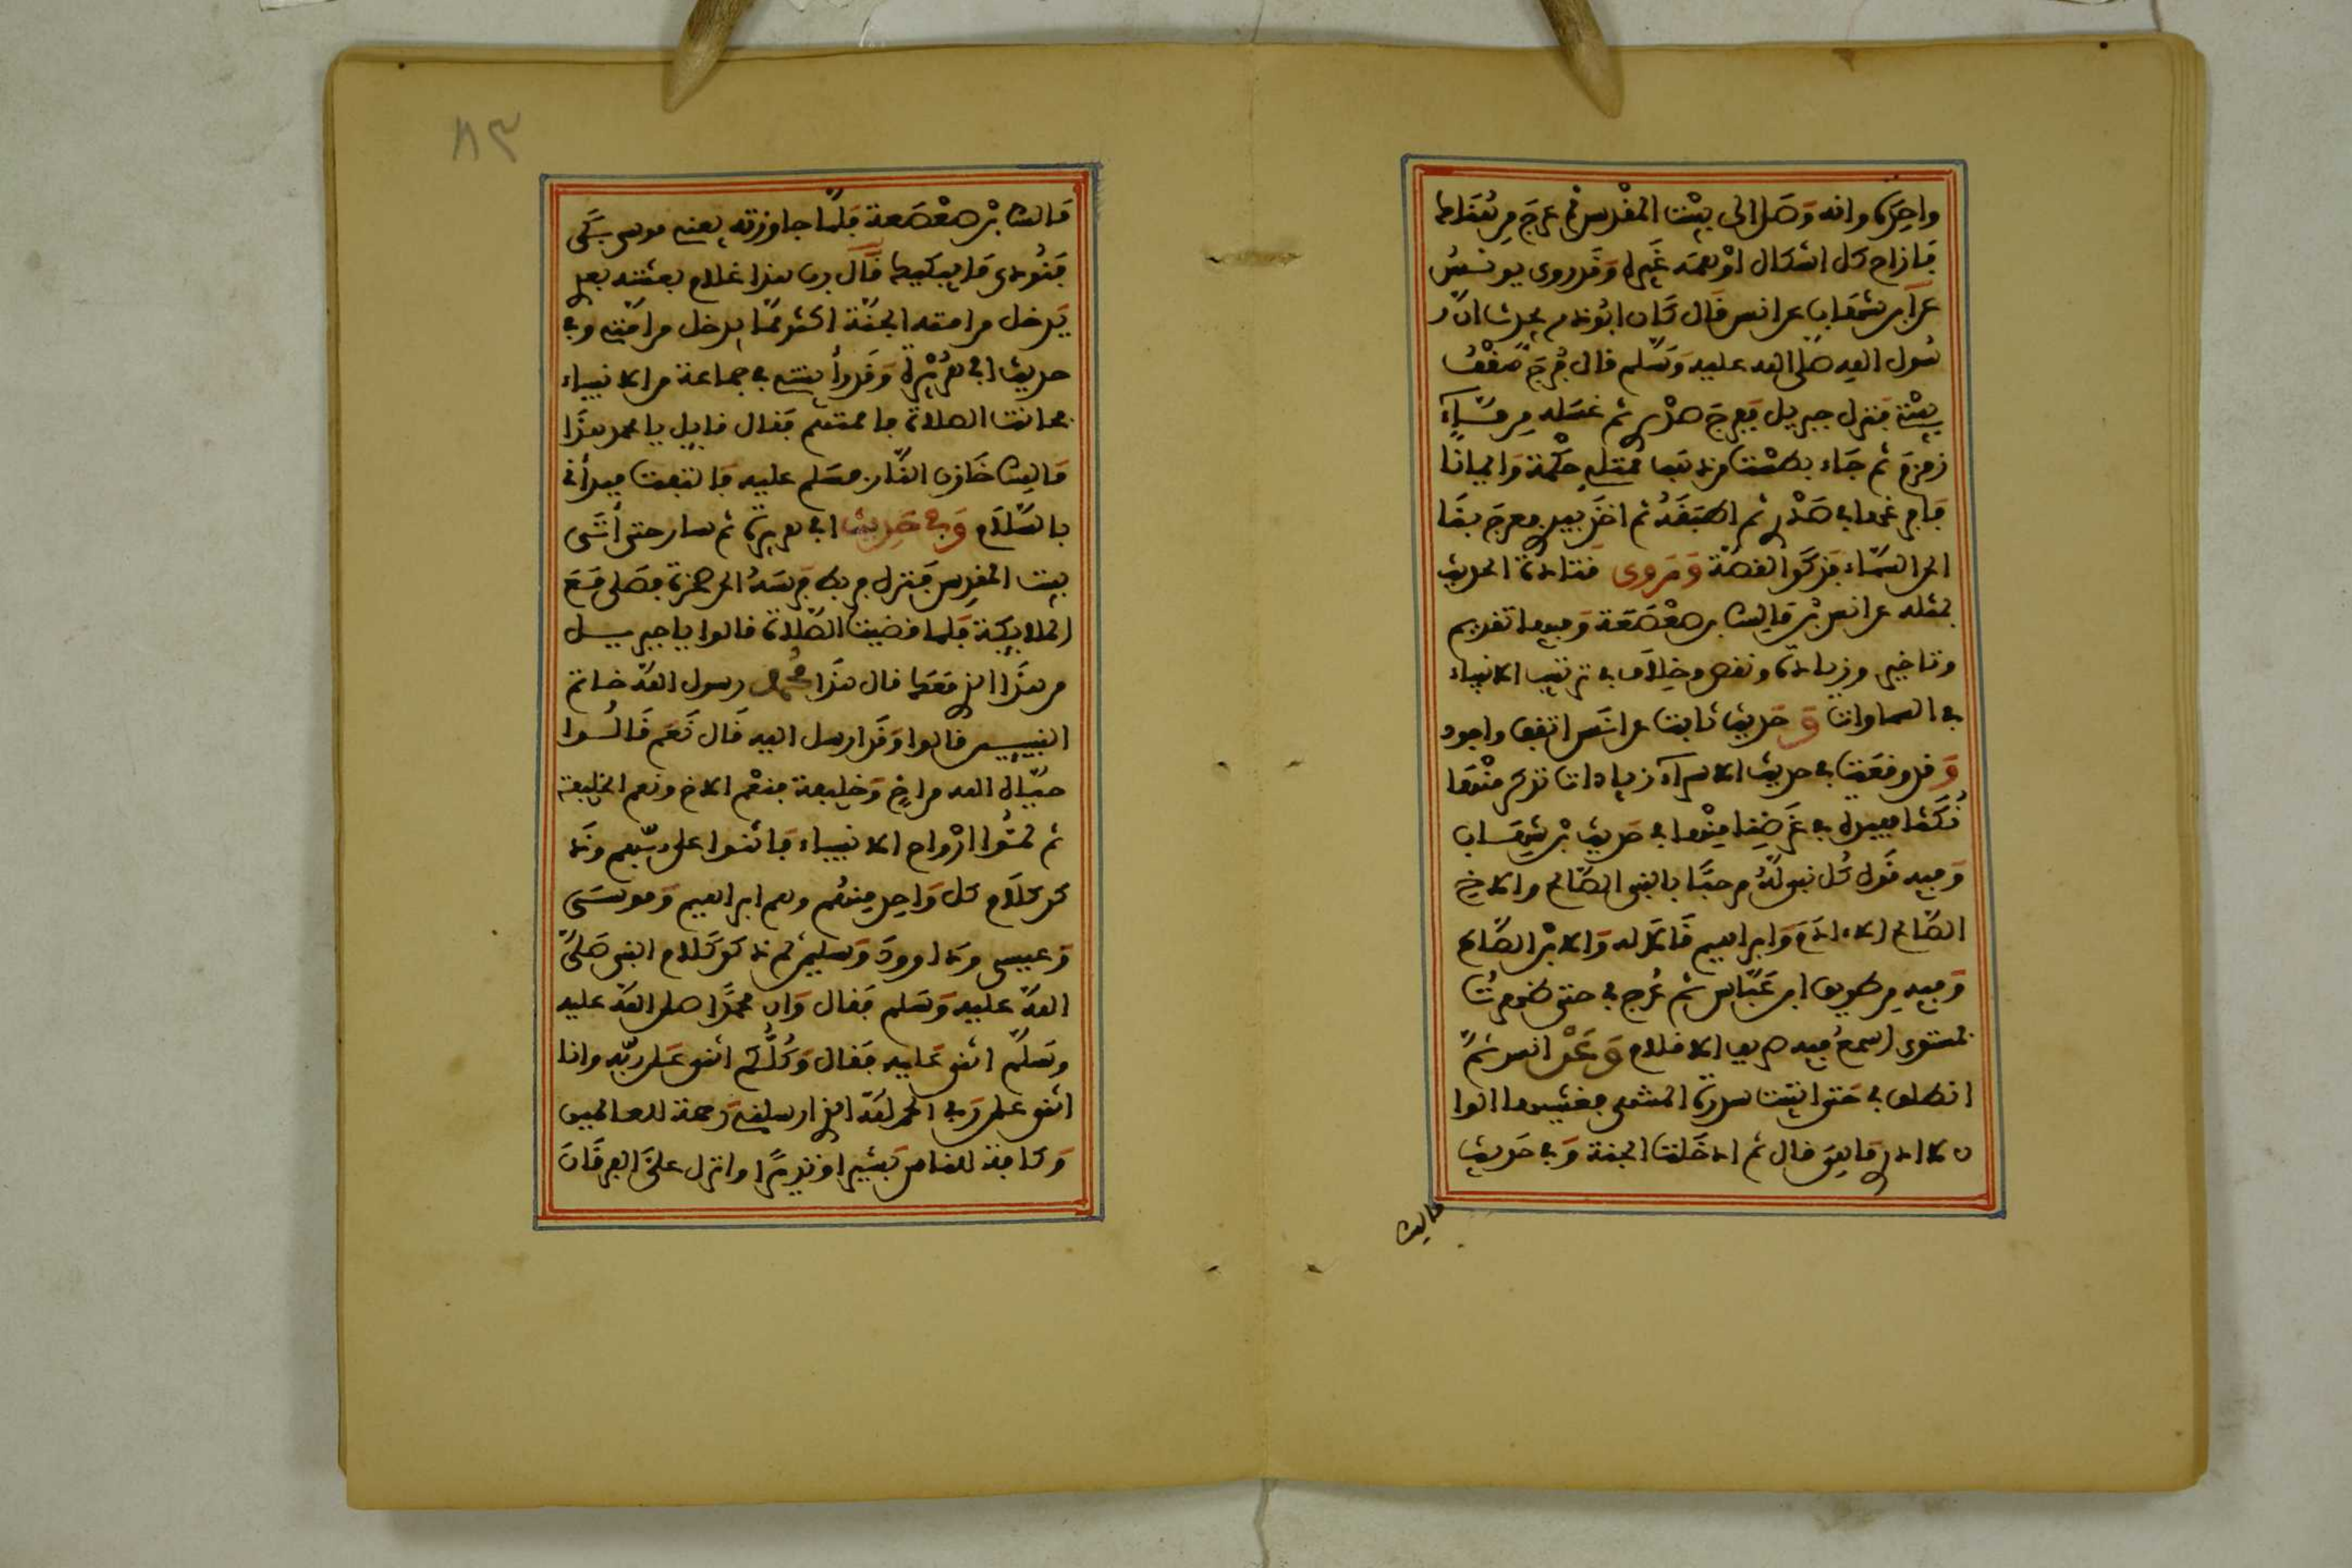 واحدة وانه وصل الى بيت المقدس ثم عرج من هناك
فازاح كل اشكال اوهمه غيره وقد روى يونس
عن ابن شهاب عن انس قال كان ابو ذر يحدث ان ر
سول الله صلى الله عليه وسلم قال فرج سقف
بيتي فنزل جبريل ففرج صدري ثم غسله من ماء
زمزم ثم جاء بطست من ذهب ممتلئ حكمة وايمانا
فافرغها في صدري ثم اطبقه ثم اخذ بيدي فعرج بنا
الى السماء فذكر القصة وروى قتادة الحديث
بمثله عن انس بن مالك بن صعصعة وفيها تقديم
وتاخير وزيادة ونقص وخلاف في ترتيب الانبياء
في السماوات وحديث ثابت عن انس اتقن واجود
وقد وقعت في حديث الاسراء زيادات نذكر منها
نكتا مفيدة في غرضنا منها في حديث بن شهاب
وفيه قول كل نبي له مرحبا بالنبي الصالح والاخ
الصالح الا ادم وابراهيم فقالا له والابن الصالح
وفيه من طريق ابن عباس ثم عرج بي حتى ظهرت
بمستوى اسمع فيه صريف الاقلام وعن انس ثم
انطلق بي حتى اتيت سدرة المنتهى فغشيها الوا
ن لا ادري ما هي قال ثم ادخلت الجنة وفي حديث
مالك
٨٣
مالك بن صعصعة فلما جاوزته يعني موسى بكى
فنودي ما يبكيك قال رب هذا غلام بعثته بعدي
يدخل من امته الجنة اكثر مما يدخل من امتي وفي
حديث ابي هريرة وقد رأيتني في جماعة من الانبياء
فحانت الصلاة فاممتهم فقال قايل يا محمد هذا
مالك خازن النار فسلم عليه فالتفت فبدأني
بالسلام وفي حديث ابي هريرة ثم سار حتى أتى
بيت المقدس فنزل فربط فرسه الى صخرة فصلى مع
الملايكة فلما قضيت الصلاة قالوا يا جبريل
من هذا الذي معك قال هذا محمد رسول الله خاتم
النبيين قالوا وقد ارسل اليه قال نعم قالوا
حياه الله من اخ وخليفة فنعم الاخ ونعم الخليفة
ثم لقوا ارواح الانبياء فاثنوا على ربهم وذ
كر كلام كل واحد منهم وهم ابراهيم وموسى
وعيسى وداوود وسليمن ثم ذكر كلام النبي صلى
الله عليه وسلم فقال وان محمدا صلى الله عليه
وسلم اثنى على ربه فقال وكلكم اثنى على ربه وانا
اثني على ربي الحمد لله الذي ارسلني رحمة للعالمين
وكافة للناس بشيرا ونذيرا وانزل علي الفرقان